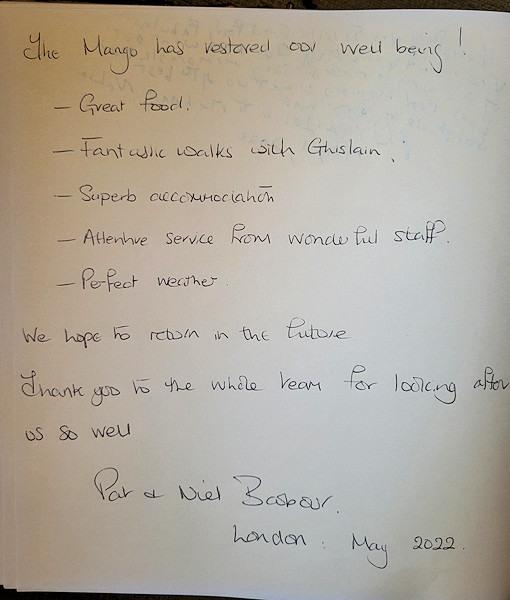 The Mango has restored our well being!
– Great food.
– Fantastic walks with Ghislain.
– Superb accommodation
– Attentive service from wonderful staff.
– Perfect weather.
We hope to return in the future
Thank you to the whole team for looking after
us so well
Pat & Niel Barbour.
London. May 2022.